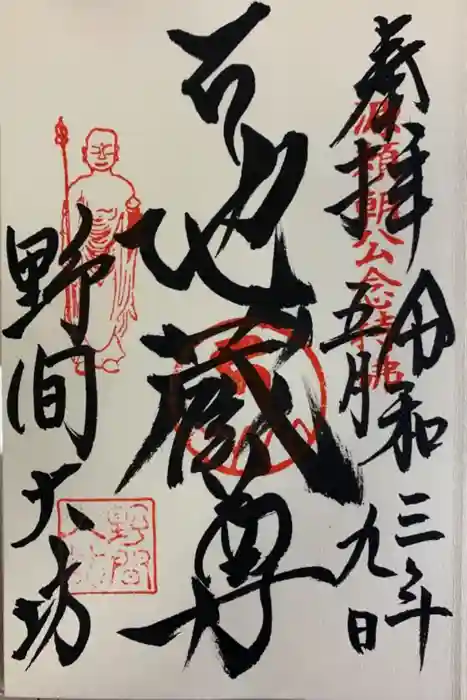 奉拝
源頼朝公念持佛
令和三年
五月九日
地蔵尊
野間大坊
野間
大坊